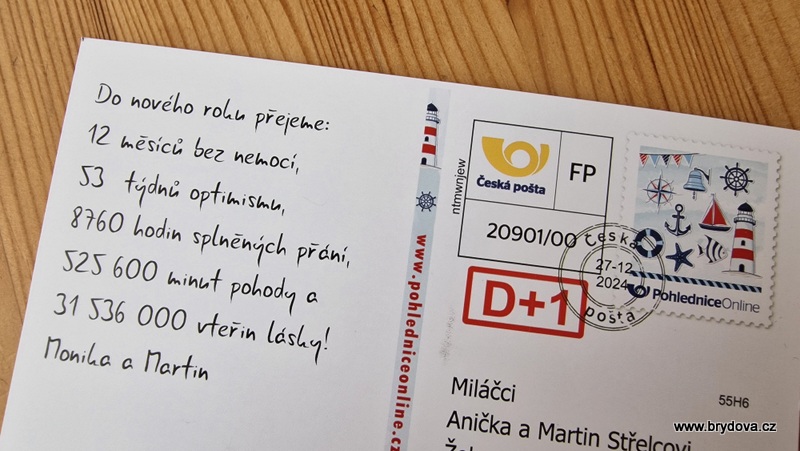 Do nového roku přejeme:
12 měsíců bez nemocí,
53 týdnů optimismu,
8760 hodin splněných přání,
525 600 minut pohody a
31 536 000 vteřin lásky!
Monika a Martin
www.pohledniceonline.cz
ntmwnjew
Česká pošta
FP
20901/00
D+1
Česká
27-12
2024
pošta
PohledniceOnline
55H6
Miláčci
Anička a Martin Střelcovi
www.brydova.cz